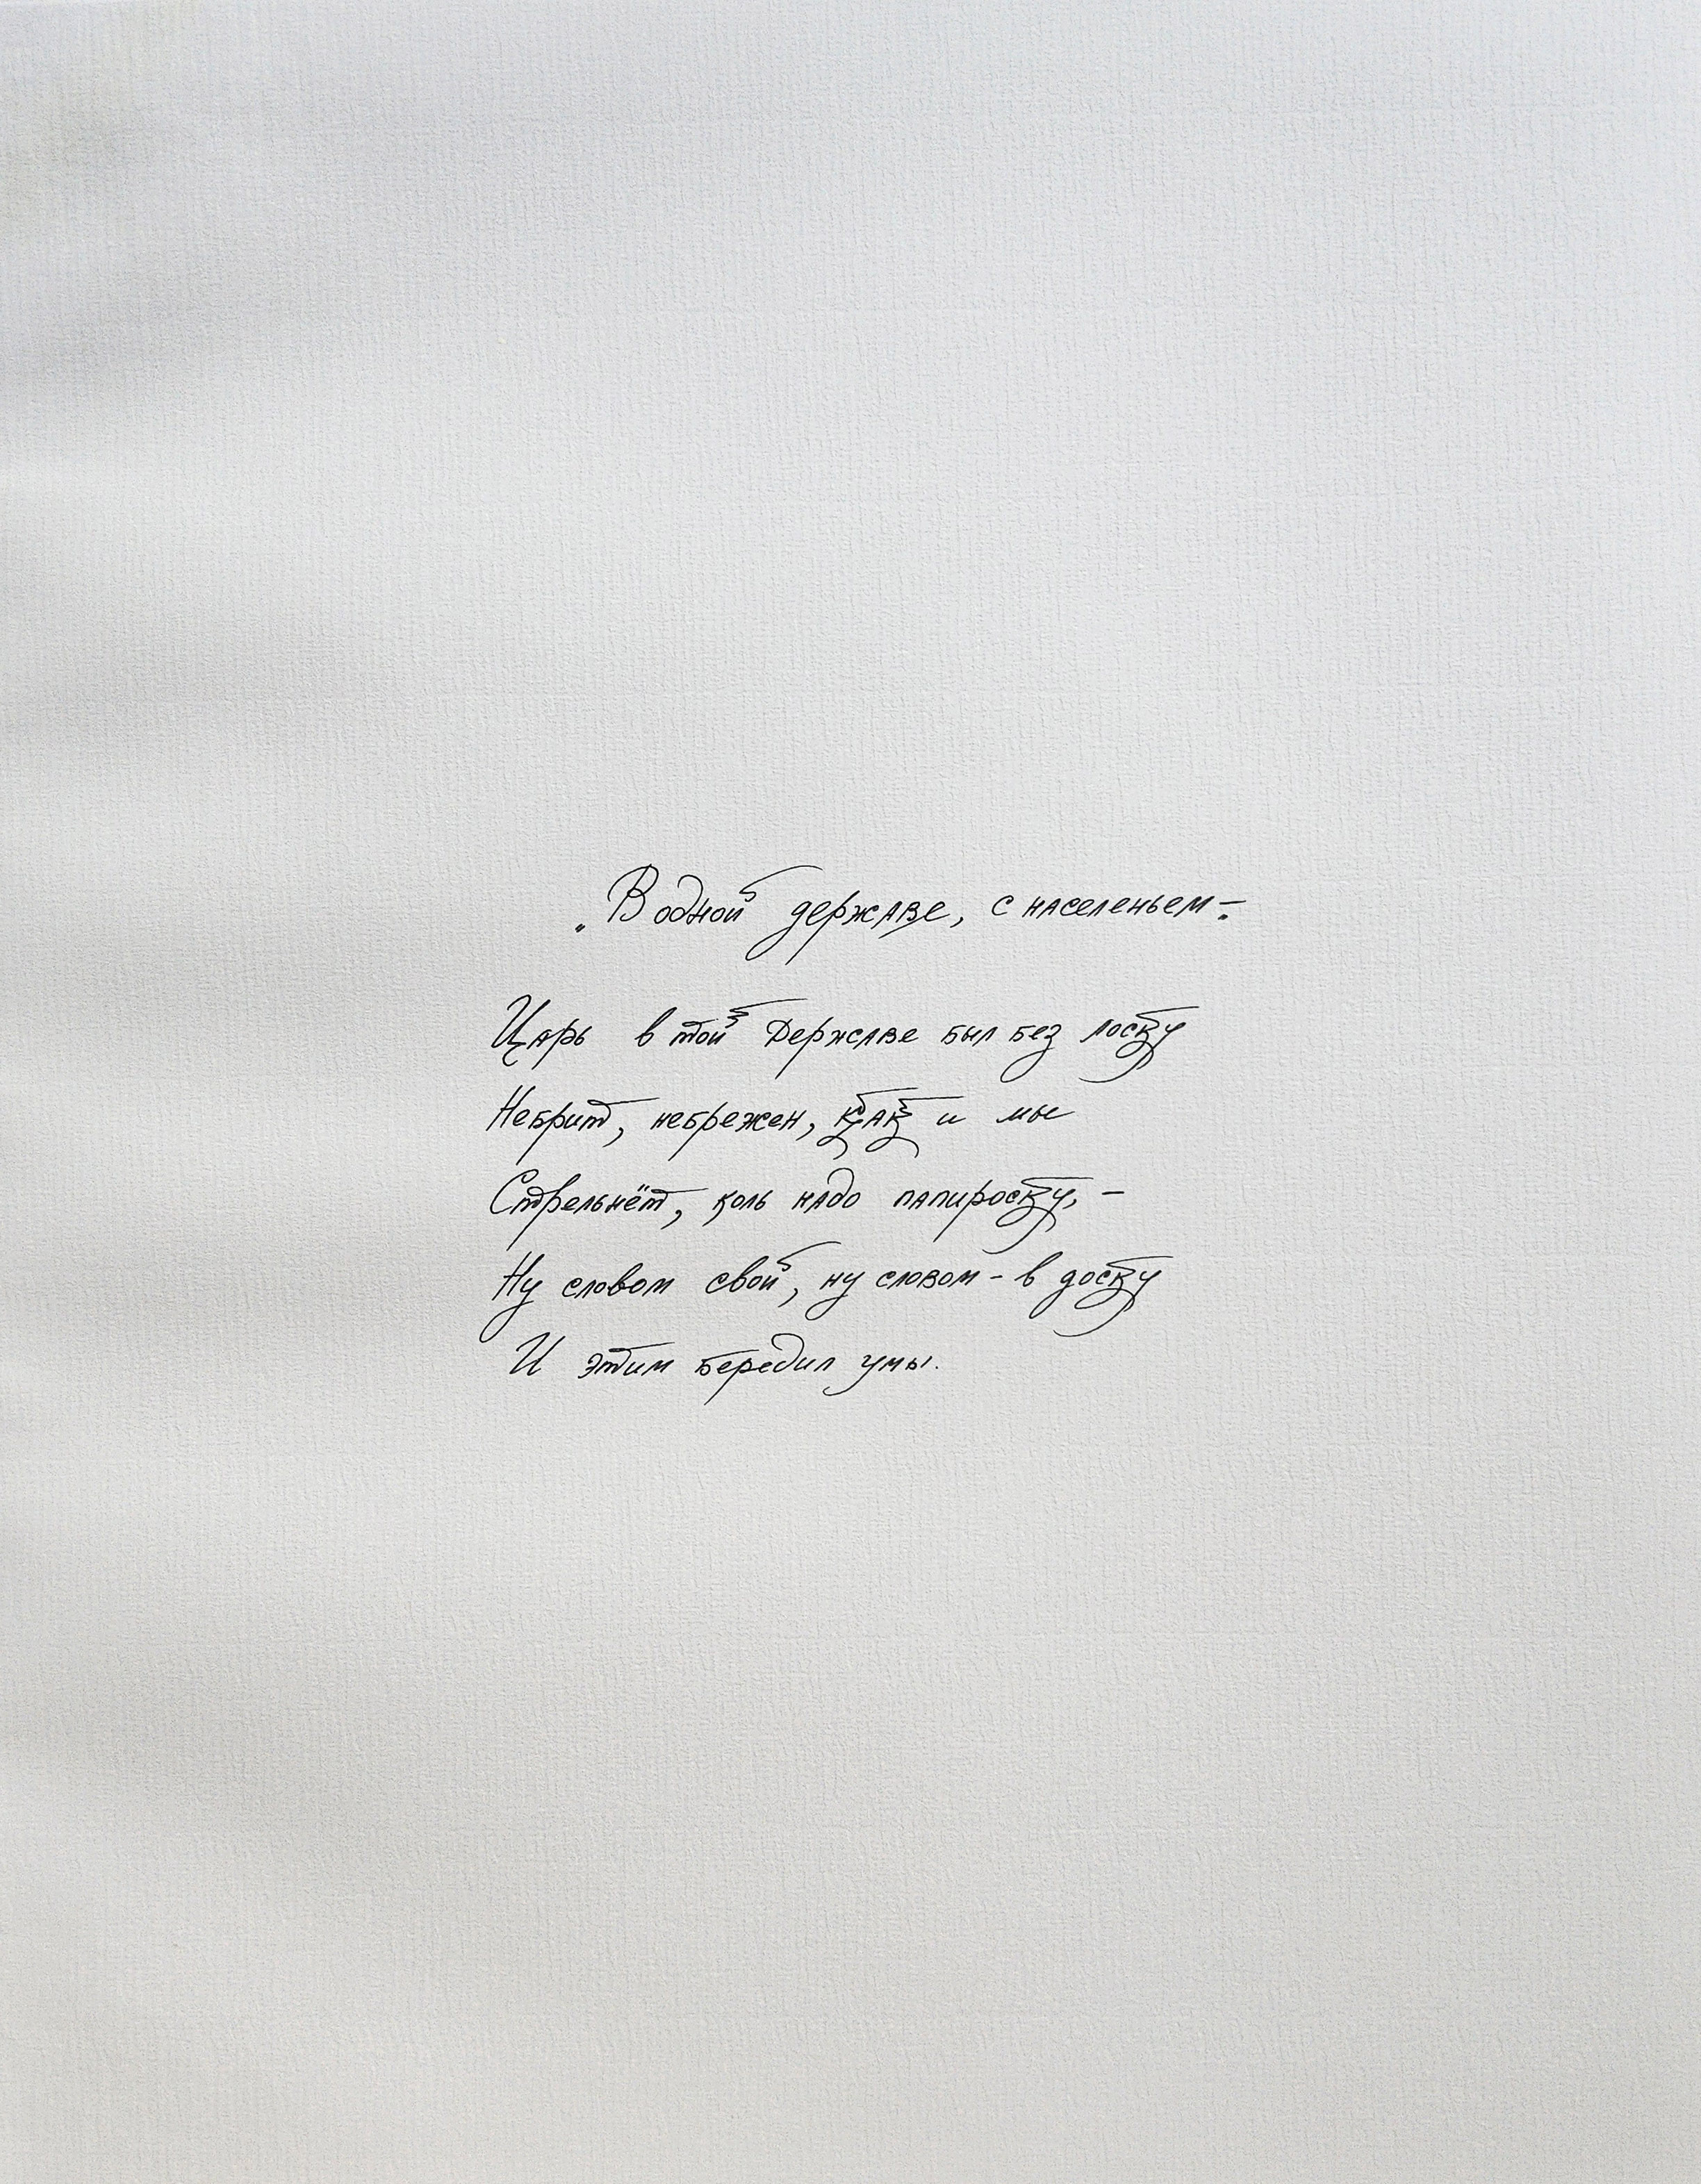 „В одной державе, с населеньем –"
Царь в той Державе был без лоску
Небрит, небрежен, как и мы
Стрельнёт, коль надо папироску, –
Ну словом свой, ну словом – в доску
И этим бередил умы.